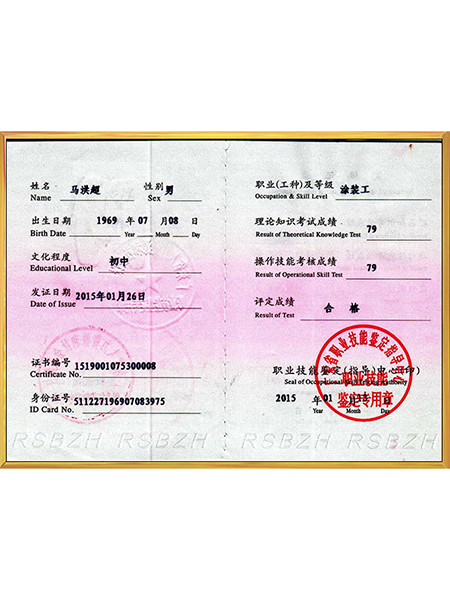 姓名 马洪超 性别 男
Name Sex
出生日期 1969 年 07 月 08 日
Birth Date Year Month Day
文化程度 初中
Educational Level
发证日期 2015年01月26日
Date of Issue
证书编号 1519001075300008
Certificate No.
身份证号 511227196907083975
ID Card No.
RSBZH RSBZH RSBZH
职业(工种)及等级 涂装工
Occupation & Skill Level
理论知识考试成绩 79
Result of Theoretical Knowledge Test
操作技能考核成绩 79
Result of Operational Skill Test
评定成绩 合格
Result of Test
职业技能鉴定(指导)中心(印)
Seal of Occupational Skill Testing Authority
2015 年 01 月 日
Year Month Day
省职业技能鉴定指导
职业技能
鉴定专用章
RSBZH RSBZH RSBZH